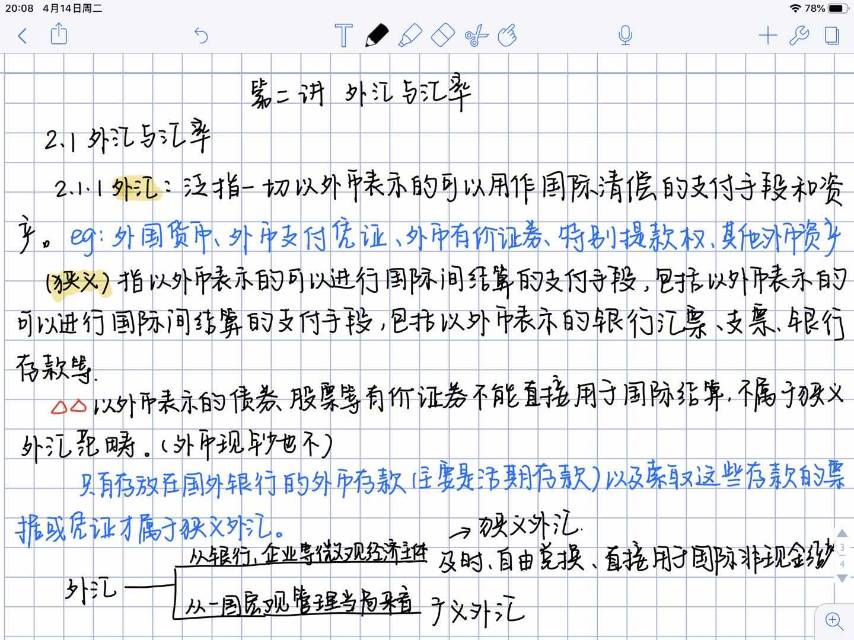 20:08 4月14日周二
78%
T
第二讲 外汇与汇率
2.1 外汇与汇率
2.1.1 外汇：泛指一切以外币表示的可以用作国际清偿的支付手段和资
产。eg：外国货币、外币支付凭证、外币有价证券、特别提款权、其他外币资产
（狭义）指以外币表示的可以进行国际间结算的支付手段，包括以外币表示的
可以进行国际间结算的支付手段，包括以外币表示的银行汇票、支票、银行
存款等.
△△以外币表示的债券、股票等有价证券不能直接用于国际结算，不属于狭义
外汇范畴。（外币现钞也不）
只有存放在国外银行的外币存款（主要是活期存款）以及索取这些存款的票
据或凭证才属于狭义外汇。
→狭义外汇.
从银行，企业等微观经济主体 及时、自由兑换、直接用于国际非现金
外汇
从一国宏观管理当局来看 广义外汇
3
4